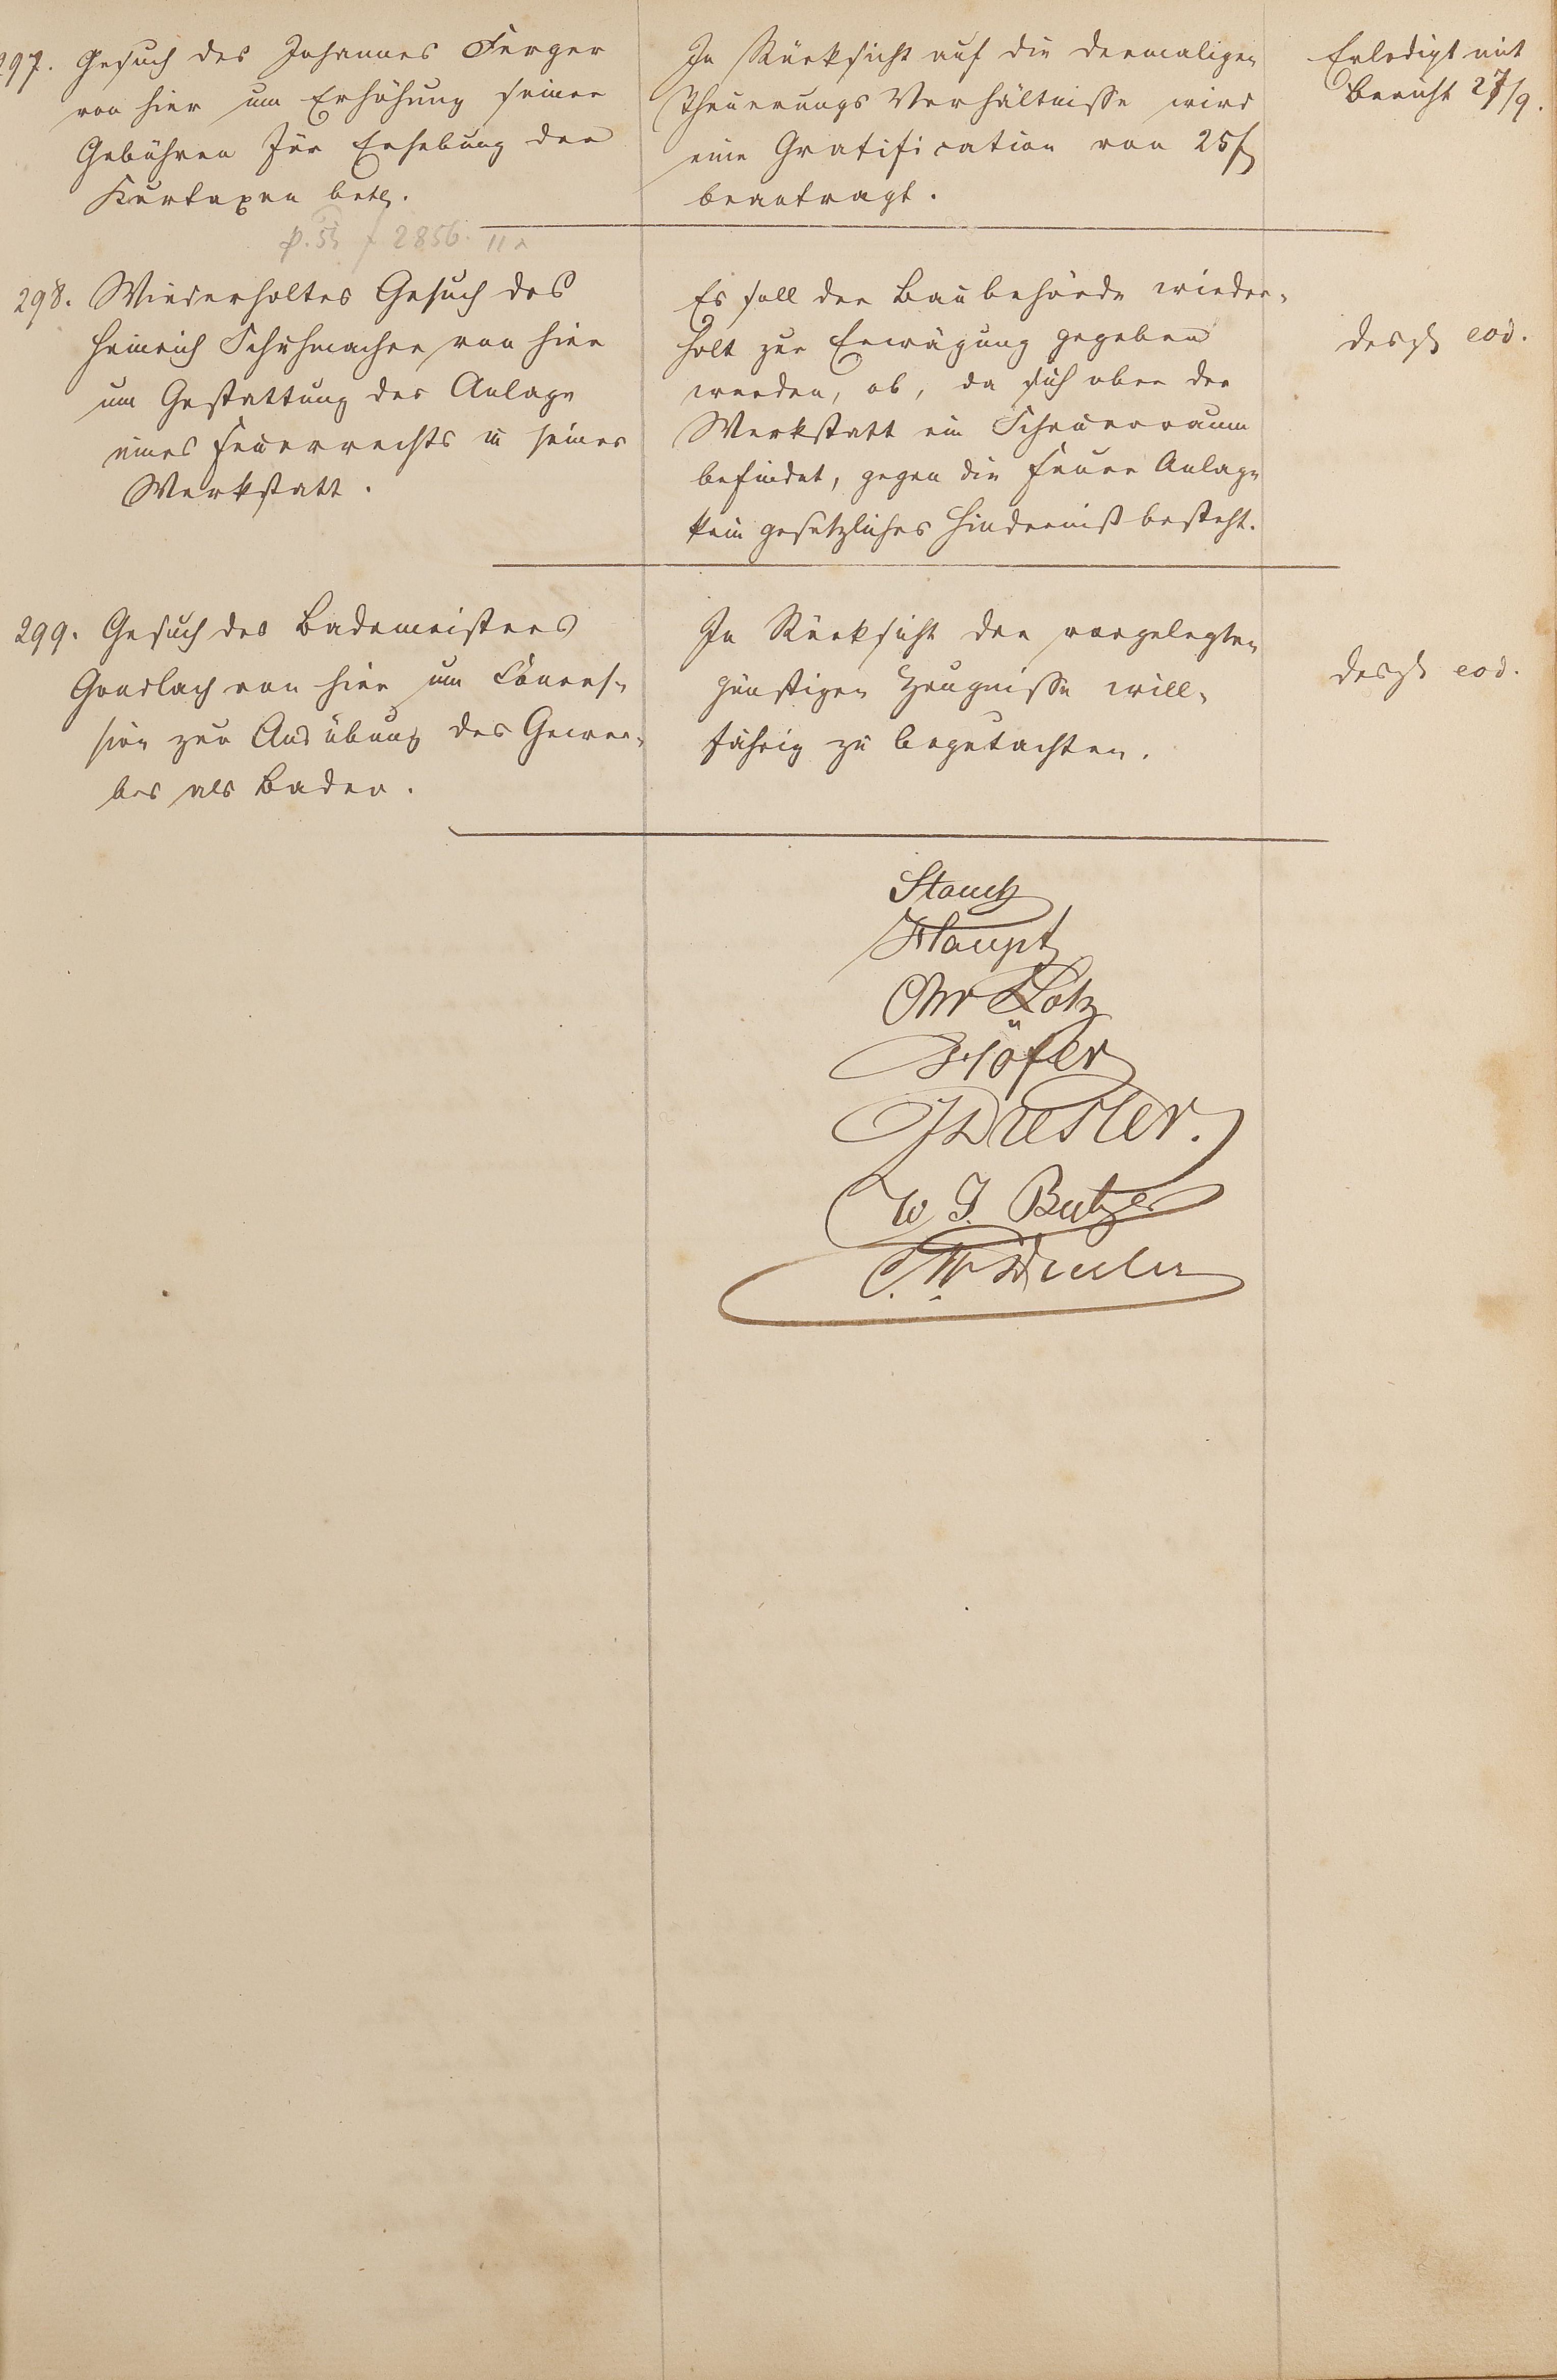 297. Gesuch des Johannes Ferger
von hier um Erhöhung seiner
Gebühren für Erhebung der
Kurtaxen betr.
In Rücksicht auf die dermaligen
Theuerungs Verhältnisse wird
eine Gratification von 25 f
beantragt.
Erledigt mit
Bericht 27/9.
2856.
298. Wiederholtes Gesuch des
Heinrich Schuhmacher von hier
um Gestattung der Anlage
eines Feuerrechts in seiner
Werkstatt.
Es soll der Baubehörde wieder-
holt zur Erwägung gegeben
werden, ob, da sich ober der
Werkstatt ein Scheuerraum
befindet, gegen die Feuer Anlage
kein gesetzliches Hinderniß besteht.
desgl eod.
299. Gesuch des Bademeisters
Gondlach von hier um Conces-
sion zur Ausübung des Gewer-
bes als Bader.
In Rücksicht der vorgelegten
günstigen Zeugnisse will-
fährig zu begutachten.
desgl eod.
Stauch
Haupt
Chr Lotz
Höfer
J Dresler.
W. J. Butzer